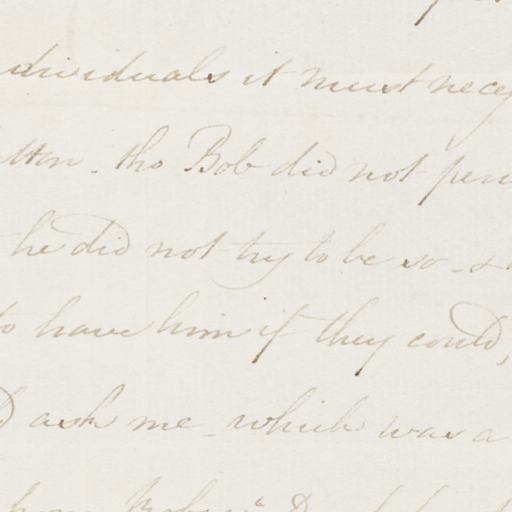 dividuals it must neces
tton - tho Bob did not per
he did not try to be so - &
to have him if they could,
ask me - which was a